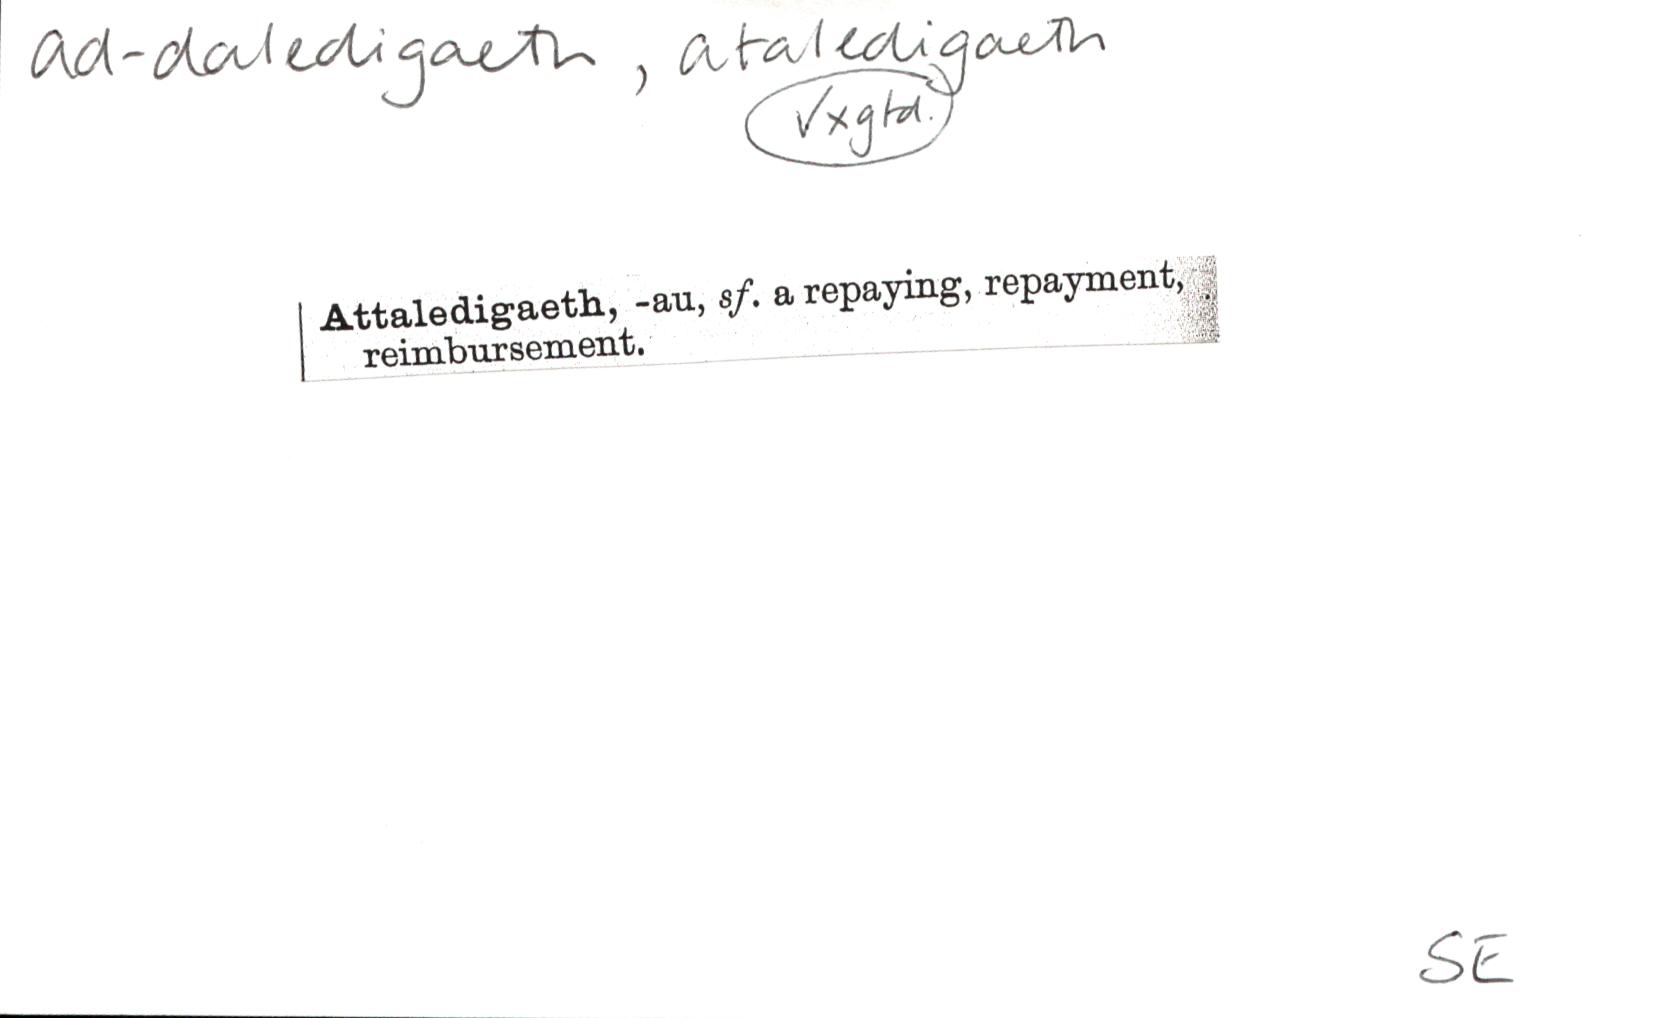 ad-daledigaeth, ataledigaeth
√xgtd.
Attaledigaeth, -au, sf. a repaying, repayment,
reimbursement.
SE